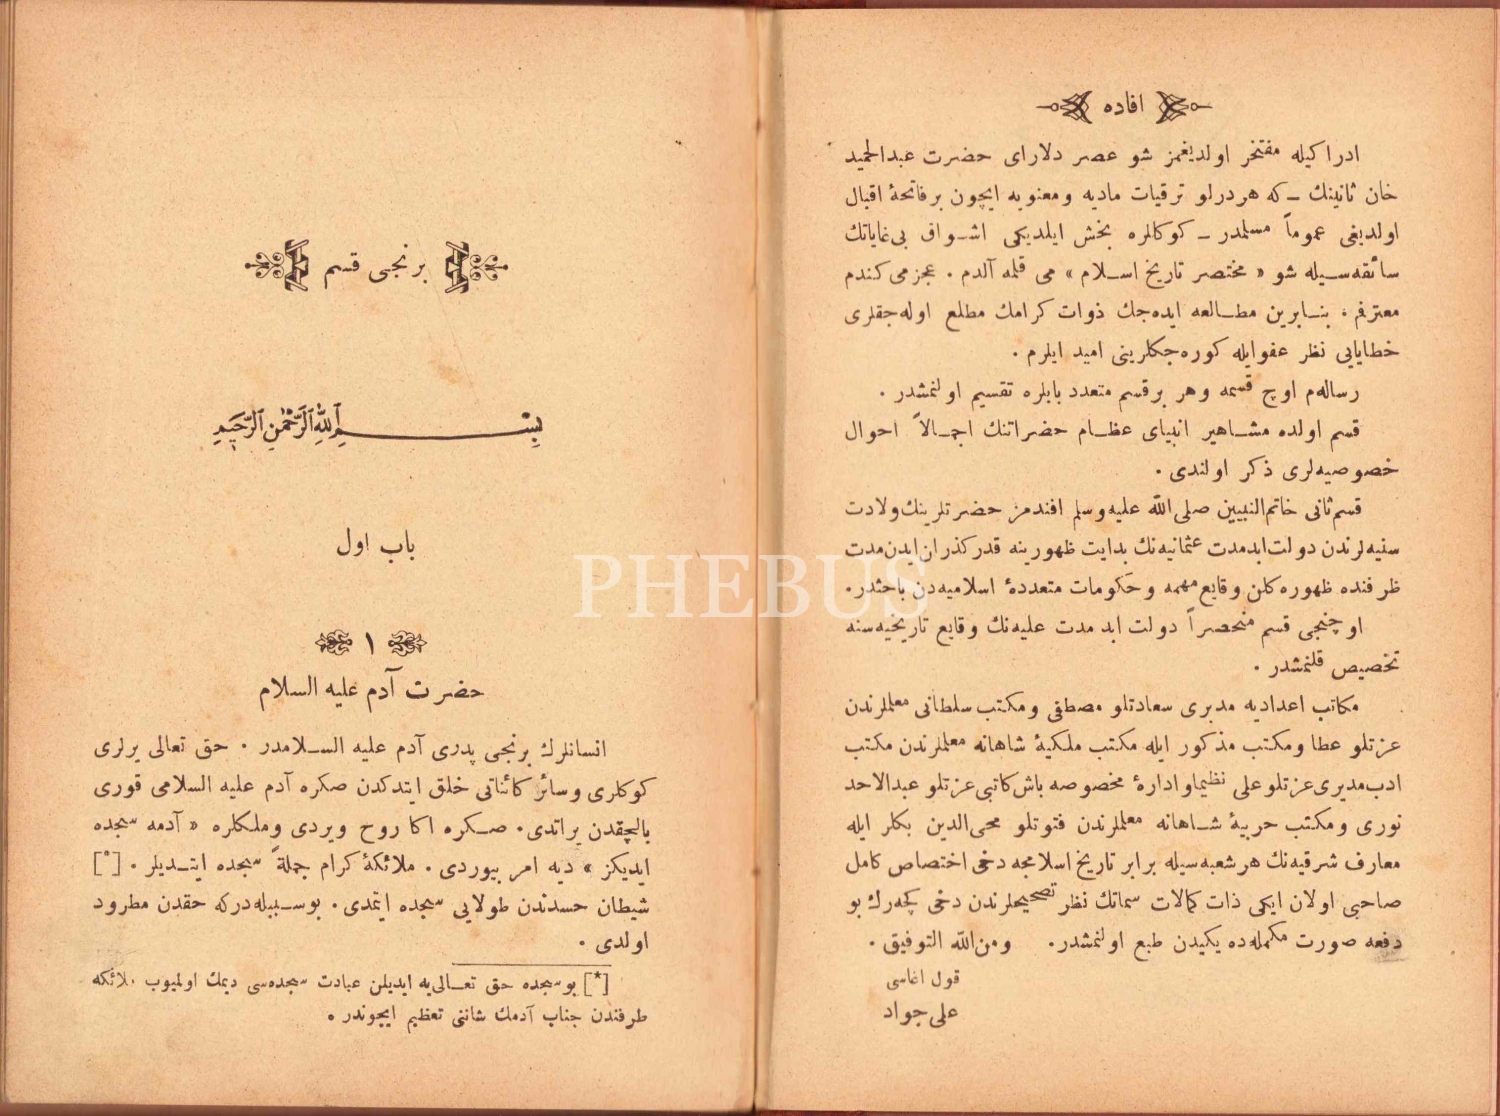 افاده
ادراكیله مفتخر اولدیغمز شو عصر دلارای حضرت عبدالحمید
خان ثانینك ــ كه هر درلو ترقیات مادیه و معنویه ایچون بر فاتحهٔ اقبال
اولدیغی عموماً مسلمدر ــ كوكللره بخش ایلدیكی اشواق بی‌غایاتك
سائقه‌سیله شو « مختصر تاریخ اسلام » ی قلمه آلدم . عجزمی كندم
معترفم . بنابرین مطالعه ایده‌جك ذوات كرامك مطلع اوله‌جقلری
خطایایی نظر عفو ایله كوره‌جكلرینی امید ایلرم .
رساله‌م اوچ قسمه و هر بر قسم متعدد بابلره تقسیم اولنمشدر .
قسم اولده مشاهیر انبیای عظام حضراتنك اجمالاً احوال
خصوصیه‌لری ذكر اولندی .
قسم ثانی خاتم‌النبیین صلی‌الله علیه‌وسلم افندمز حضرتلرینك ولادت
سنیه‌لرندن دولت ابدمدت عثمانیه‌نك بدایت ظهورینه قدر كذران ایدن مدت
ظرفنده ظهوره كلن وقایع مهمه و حكومات متعددهٔ اسلامیه‌دن باحثدر.
اوچنجی قسم منحصراً دولت ابد مدت علیه‌نك وقایع تاریخیه‌سنه
تخصیص قلنمشدر .
مكاتب اعدادیه مدیری سعادتلو مصطفی و مكتب سلطانی معلملرندن
عزتلو عطا و مكتب مذكور ایله مكتب ملكیهٔ شاهانه معلملرندن مكتب
ادب مدیری عزتلو علی نظیما و ادارهٔ مخصوصه باش كاتبی عزتلو عبدالاحد
نوری و مكتب حربیهٔ شاهانه معلملرندن فتوتلو محی‌الدین بكلر ایله
معارف شرقیه‌نك هر شعبه‌سیله برابر تاریخ اسلامجه دخی اختصاص كامل
صاحبی اولان ایكی ذات كمالات سماتك نظر تصحیحلرندن دخی كچه‌رك بو
دفعه صورت مكمله‌ده یكیدن طبع اولنمشدر. ومن‌الله التوفیق .
قول اغاسی
علی جواد
برنجی قسم
بِسْمِ ٱللهِ ٱلرَّحْمٰنِ ٱلرَّحِيمِ
باب اول
١
حضرت آدم علیه السلام
انسانلرك برنجی پدری آدم علیه السلامدر . حق تعالی یرلری
كوكلری و سائر كائناتی خلق ایتدكدن صكره آدم علیه السلامی قوری
بالچقدن یراتدی. صكره اكا روح ویردی و ملكلره « آدمه سجده
ایدیكز » دیه امر بیوردی . ملائكهٔ كرام جملةً سجده ایتدیلر . [*]
شیطان حسدندن طولایی سجده ایتمدی . بو سببله دركه حقدن مطرود
اولدی .
[*] بو سجده حق تعالی‌یه ایدیلن عبادت سجده‌سی دیمك اولمیوب ملائكه
طرفندن جناب آدمك شاننی تعظیم ایچوندر .
PHEBUS